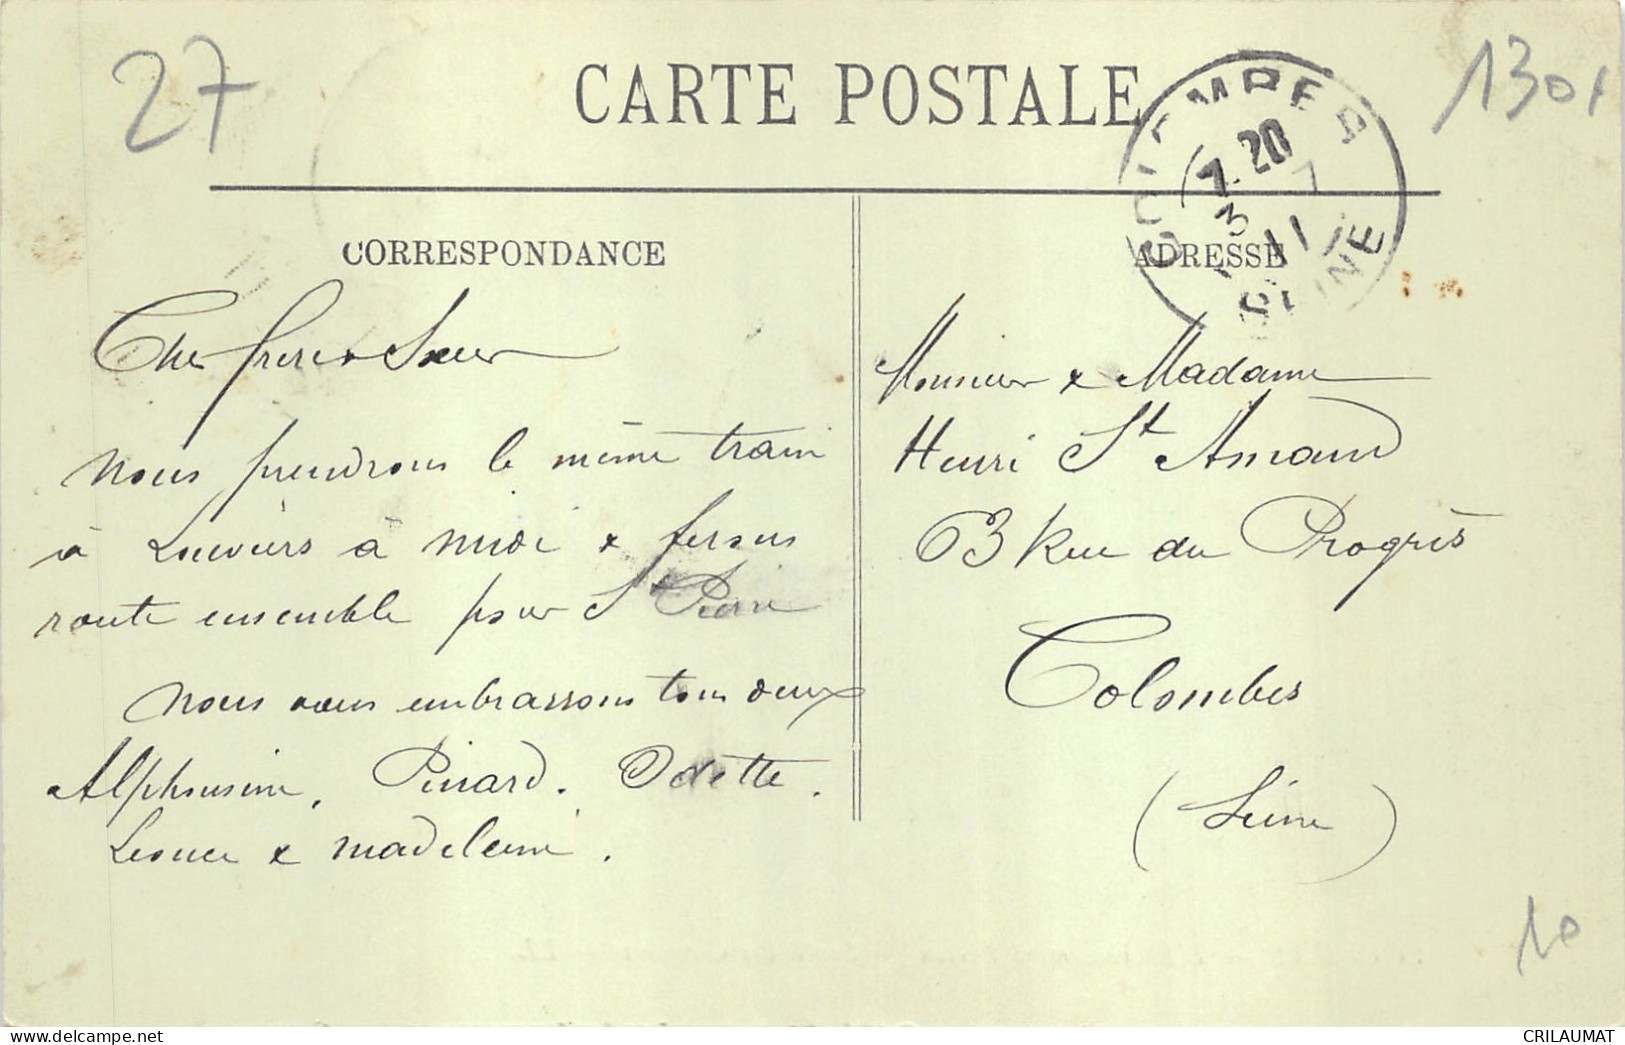 27
CARTE POSTALE
1301
COLOMBES
7.20
3
7
11
SEINE
CORRESPONDANCE
Cher frère & Sœur
nous prendrons le même train
à Louviers à midi & ferons
route ensemble pour St Pierre
nous vous embrassons tous deux
Alphonsine, Pinard. Odette.
Léonce & madeleine.
ADRESSE
Monsieur & Madame
Henri St Amand
63 Rue du Progrès
Colombes
(Seine)
10
CRILAUMAT